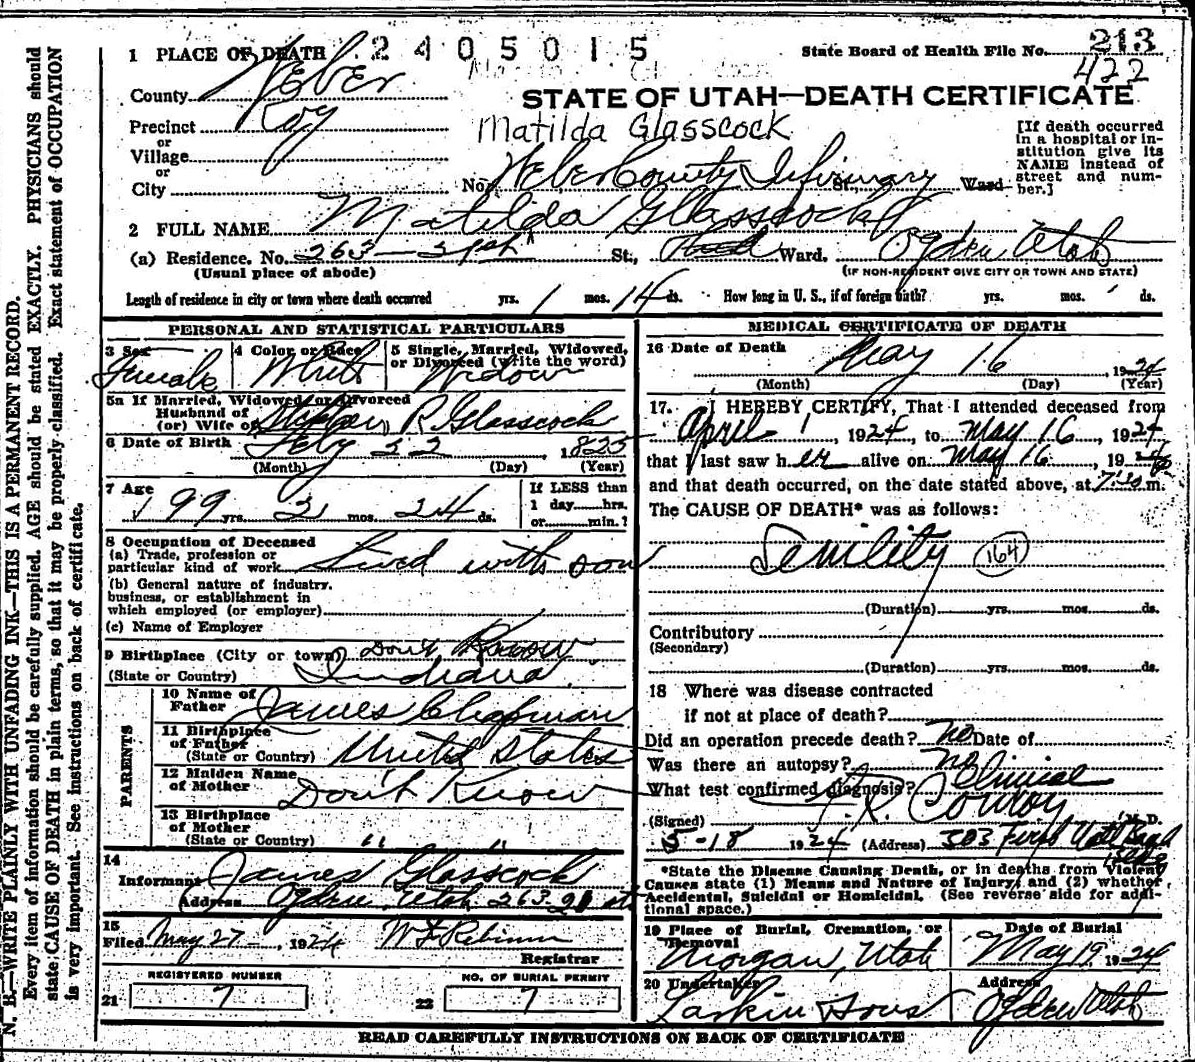 2405015
State Board of Health File No. 213
422
1 PLACE OF DEATH
County Weber
STATE OF UTAH—DEATH CERTIFICATE
Precinct Roy
or
Village
or
City
Matilda Glasscock
[If death occurred in a hospital or in-
stitution give its
NAME instead of
street and num-
ber.]
No. Weber County Infirmary St. Ward
2 FULL NAME Matilda Glasscock
(a) Residence. No. 263—31st St., Ward. Ogden Utah
(Usual place of abode)
(IF NON-RESIDENT GIVE CITY OR TOWN AND STATE)
Length of residence in city or town where death occurred yrs. 1 mos. 14 ds. How long in U. S., if of foreign birth? yrs. mos. ds.
PERSONAL AND STATISTICAL PARTICULARS
3 Sex Female
4 Color or Race White
5 Single, Married, Widowed, or Divorced (write the word) Widow
5a If Married, Widowed or Divorced
Husband of
(or) Wife of R. Glasscock
6 Date of Birth Feby 22, 1825
(Month) (Day) (Year)
7 Age 99 yrs. 2 mos. 24 ds.
If LESS than
1 day hrs.
or min.?
8 Occupation of Deceased
(a) Trade, profession or
particular kind of work lived with son
(b) General nature of industry,
business, or establishment in
which employed (or employer)
(c) Name of Employer
9 Birthplace (City or town) Don't Know
(State or Country) Indiana
PARENTS
10 Name of Father James Chapman
11 Birthplace of Father
(State or Country) United States
12 Maiden Name of Mother Don't Know
13 Birthplace of Mother
(State or Country) " "
14
Informant James Glasscock
Address Ogden, Utah, 263-
15
Filed May 27, 1924
Registrar
REGISTERED NUMBER
21 7
NO. OF BURIAL PERMIT
22 7
MEDICAL CERTIFICATE OF DEATH
16 Date of Death May 16, 1924
(Month) (Day) (Year)
17. I HEREBY CERTIFY, That I attended deceased from
April 1, 1924, to May 16, 1924
that I last saw her alive on May 16, 1924
and that death occurred, on the date stated above, at 7:30 m.
The CAUSE OF DEATH* was as follows:
Senility 164
(Duration) yrs. mos. ds.
Contributory
(Secondary)
(Duration) yrs. mos. ds.
18 Where was disease contracted
if not at place of death?
Did an operation precede death? no Date of
Was there an autopsy? no
What test confirmed diagnosis? Clinical
(Signed) Conroy M. D.
5-18 1924 (Address) 303 First Natl Bank
Bldg
*State the Disease Causing Death, or in deaths from Violent
Causes state (1) Means and Nature of Injury; and (2) whether
Accidental, Suicidal or Homicidal. (See reverse side for addi-
tional space.)
19 Place of Burial, Cremation, or Removal
Morgan, Utah
Date of Burial
May 19, 1924
20 Undertaker
Larkin Sons
Address
Ogden Utah
READ CAREFULLY INSTRUCTIONS ON BACK OF CERTIFICATE
N. B.—WRITE PLAINLY WITH UNFADING INK—THIS IS A PERMANENT RECORD.
Every item of information should be carefully supplied. AGE should be stated EXACTLY. PHYSICIANS should
state CAUSE OF DEATH in plain terms, so that it may be properly classified. Exact statement of OCCUPATION
is very important. See instructions on back of certificate.